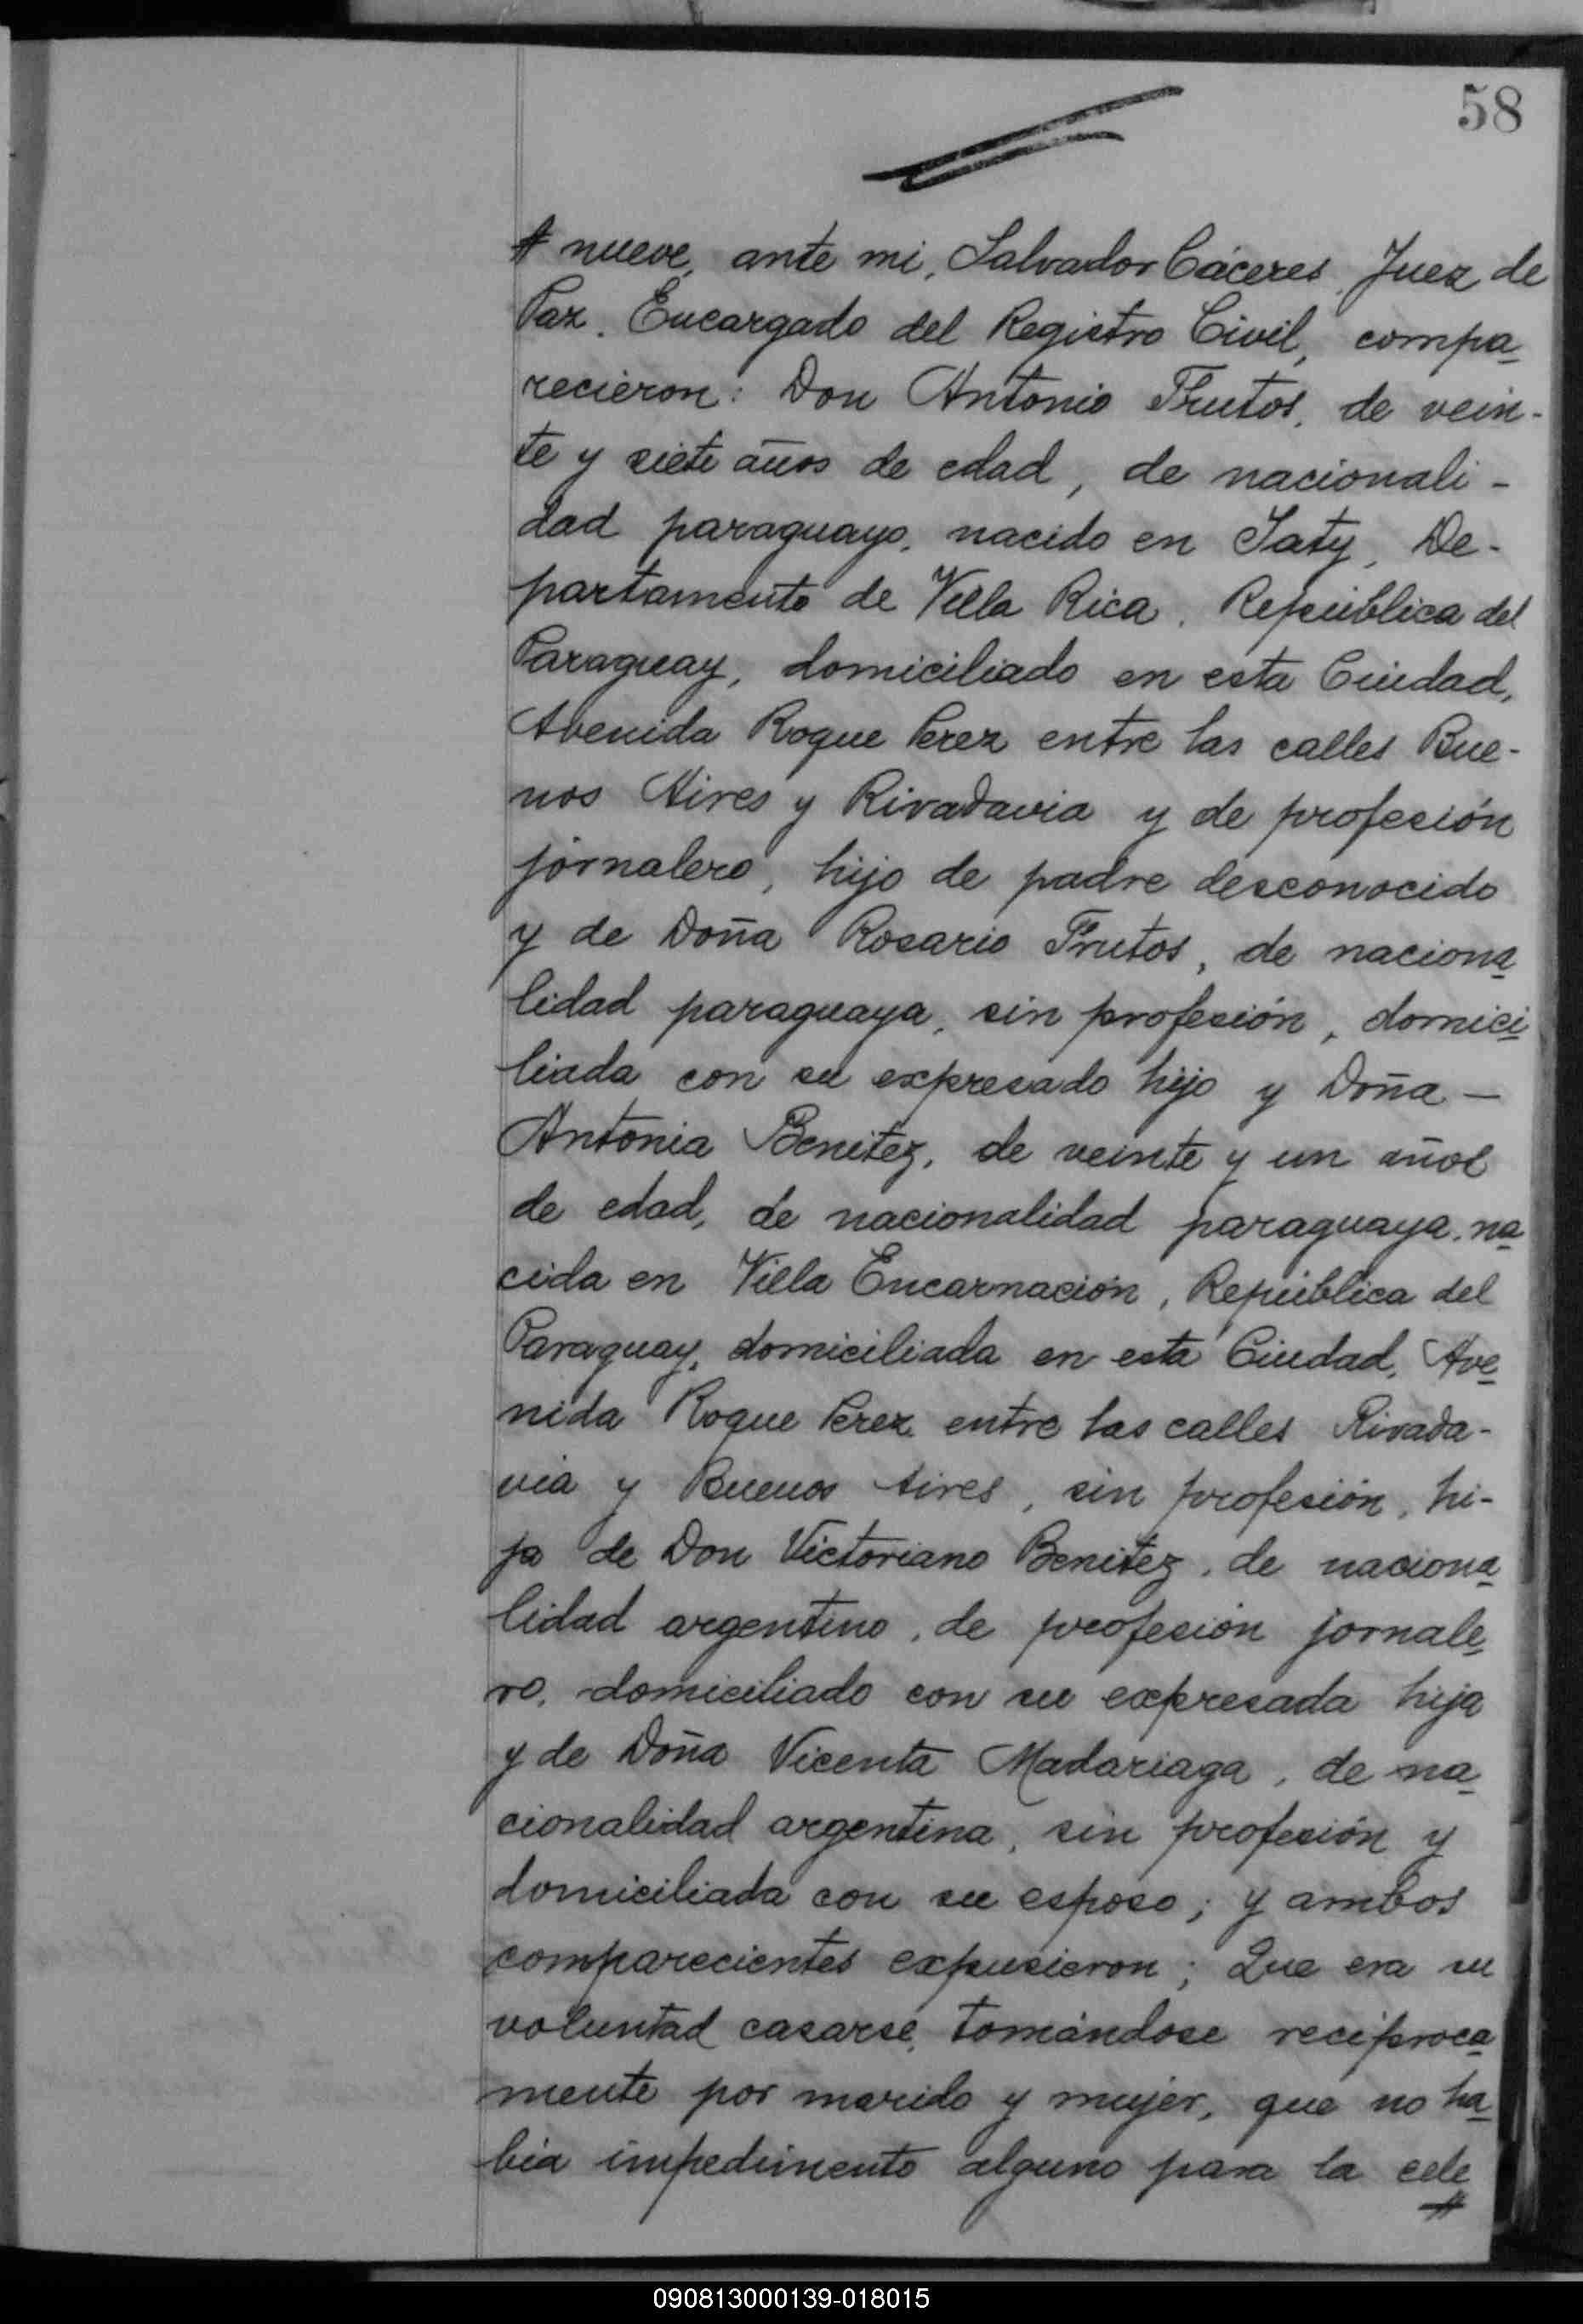 58
# nueve, ante mi, Salvador Cáceres, Juez de
Paz. Encargado del Registro Civil, compa
recieron: Don Antonio Frutos, de vein-
te y siete años de edad, de nacionali-
dad paraguayo, nacido en Jaty, De-
partamento de Villa Rica, República del
Paraguay, domiciliado en esta Ciudad,
Avenida Roque Perez entre las calles Bue-
nos Aires y Rivadavia y de profesión
jornalero, hijo de padre desconocido
y de Doña Rosario Frutos, de naciona
lidad paraguaya, sin profesión, domici
liada con su expresado hijo y Doña —
Antonia Benitez, de veinte y un años
de edad, de nacionalidad paraguaya, na
cida en Villa Encarnación, República del
Paraguay, domiciliada en esta Ciudad, Ave
nida Roque Perez entre las calles Rivada-
via y Buenos Aires, sin profesión, hi-
ja de Don Victoriano Benitez, de naciona
lidad argentino, de profesión jornale
ro, domiciliado con su expresada hija
y de Doña Vicenta Madariaga, de na
cionalidad argentina, sin profesión y
domiciliada con su esposo; y ambos
comparecientes expusieron; Que era su
voluntad casarse, tomándose recíproca
mente por marido y mujer, que no ha
bía impedimento alguno para la cele
#
090813000139-018015